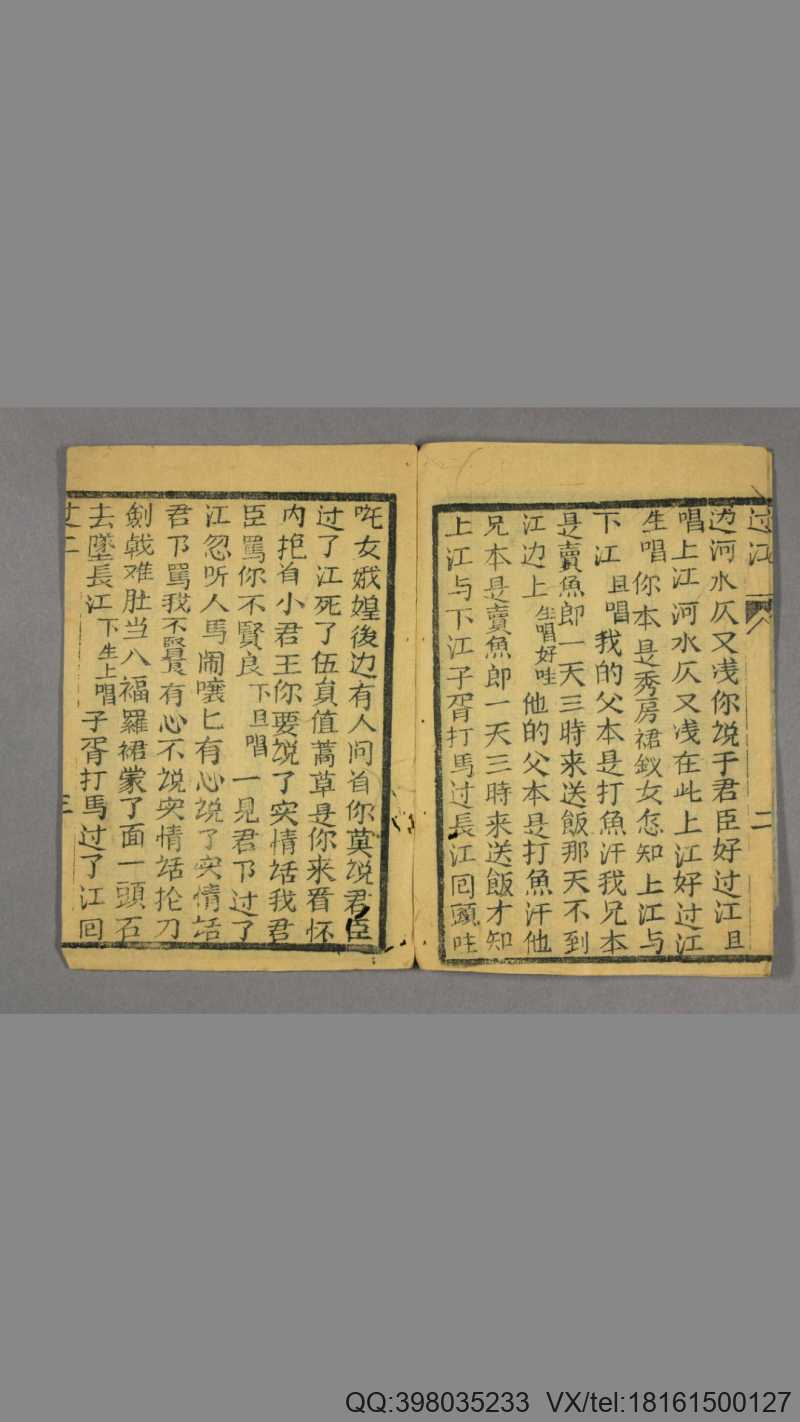 过江 二
边河水仄又浅你說于君臣好过江且
唱上江河水仄又浅在此上江好过江
生唱你本是秀房裙釵女怎知上江与
下江且唱我的父本是打魚汗我兄本
是賣魚郎一天三時来送飯那天不到
江边上生唱好哇他的父本是打魚汗他
兄本是賣魚郎一天三時来送飯才知
上江与下江子胥打馬过長江囘頭哇
咤女娥媓後边有人问着你莫說君臣
过了江死了伍員值蒿草是你来看怀
内抱着小君王你要說了实情話我君
臣罵你不賢良下旦唱一見君下过了
江忽听人馬闹嚷匕有心說了实情話
君下罵我不賢良有心不說实情話抡刀
劍戟难肚当八福羅裙蒙了面一頭石
去墜長江下生上唱子胥打馬过了江囘
三
QQ:398035233 VX/tel:18161500127